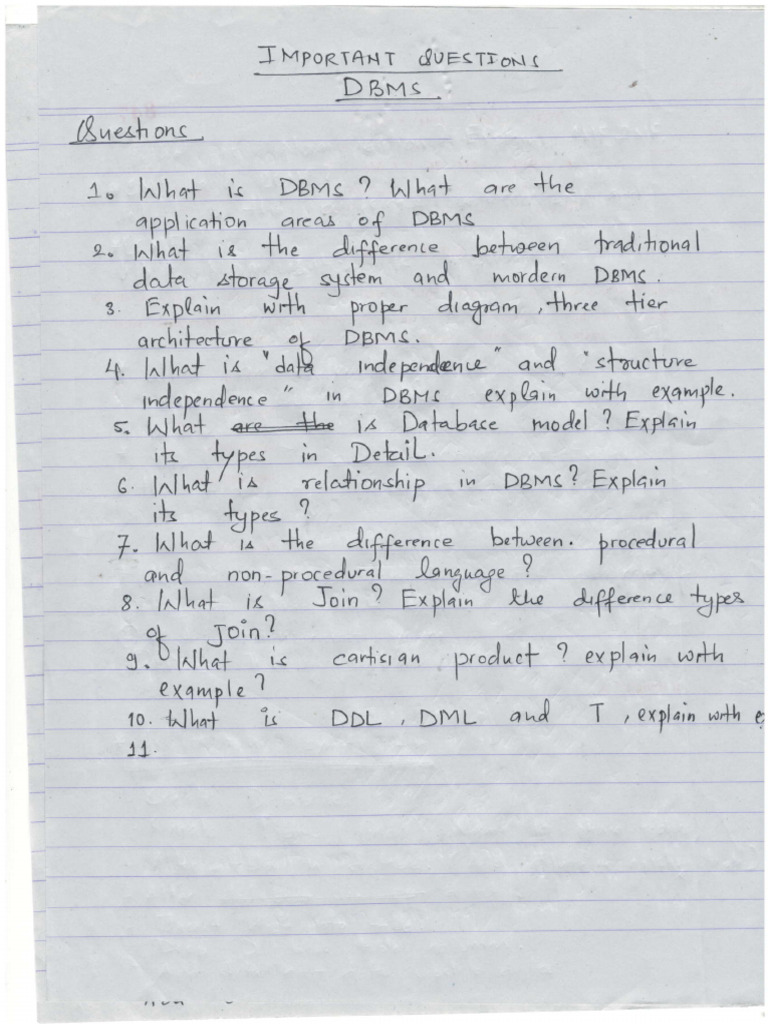 IMPORTANT QUESTIONS
DBMS
Questions
1. What is DBMS ? What are the
application areas of DBMS
2. What is the difference between traditional
data storage system and mordern DBMS.
3. Explain with proper diagram, three tier
architecture of DBMS.
4. What is "data independence" and "structure
independence" in DBMS explain with example.
5. What are the is Database model ? Explain
its types in Detail.
6. What is relationship in DBMS? Explain
its types ?
7. What is the difference between. procedural
and non-procedural language ?
8. What is Join ? Explain the difference types
of Join?
9. What is cartisian product ? explain with
example ?
10. What is DDL, DML and T, explain with e
11.